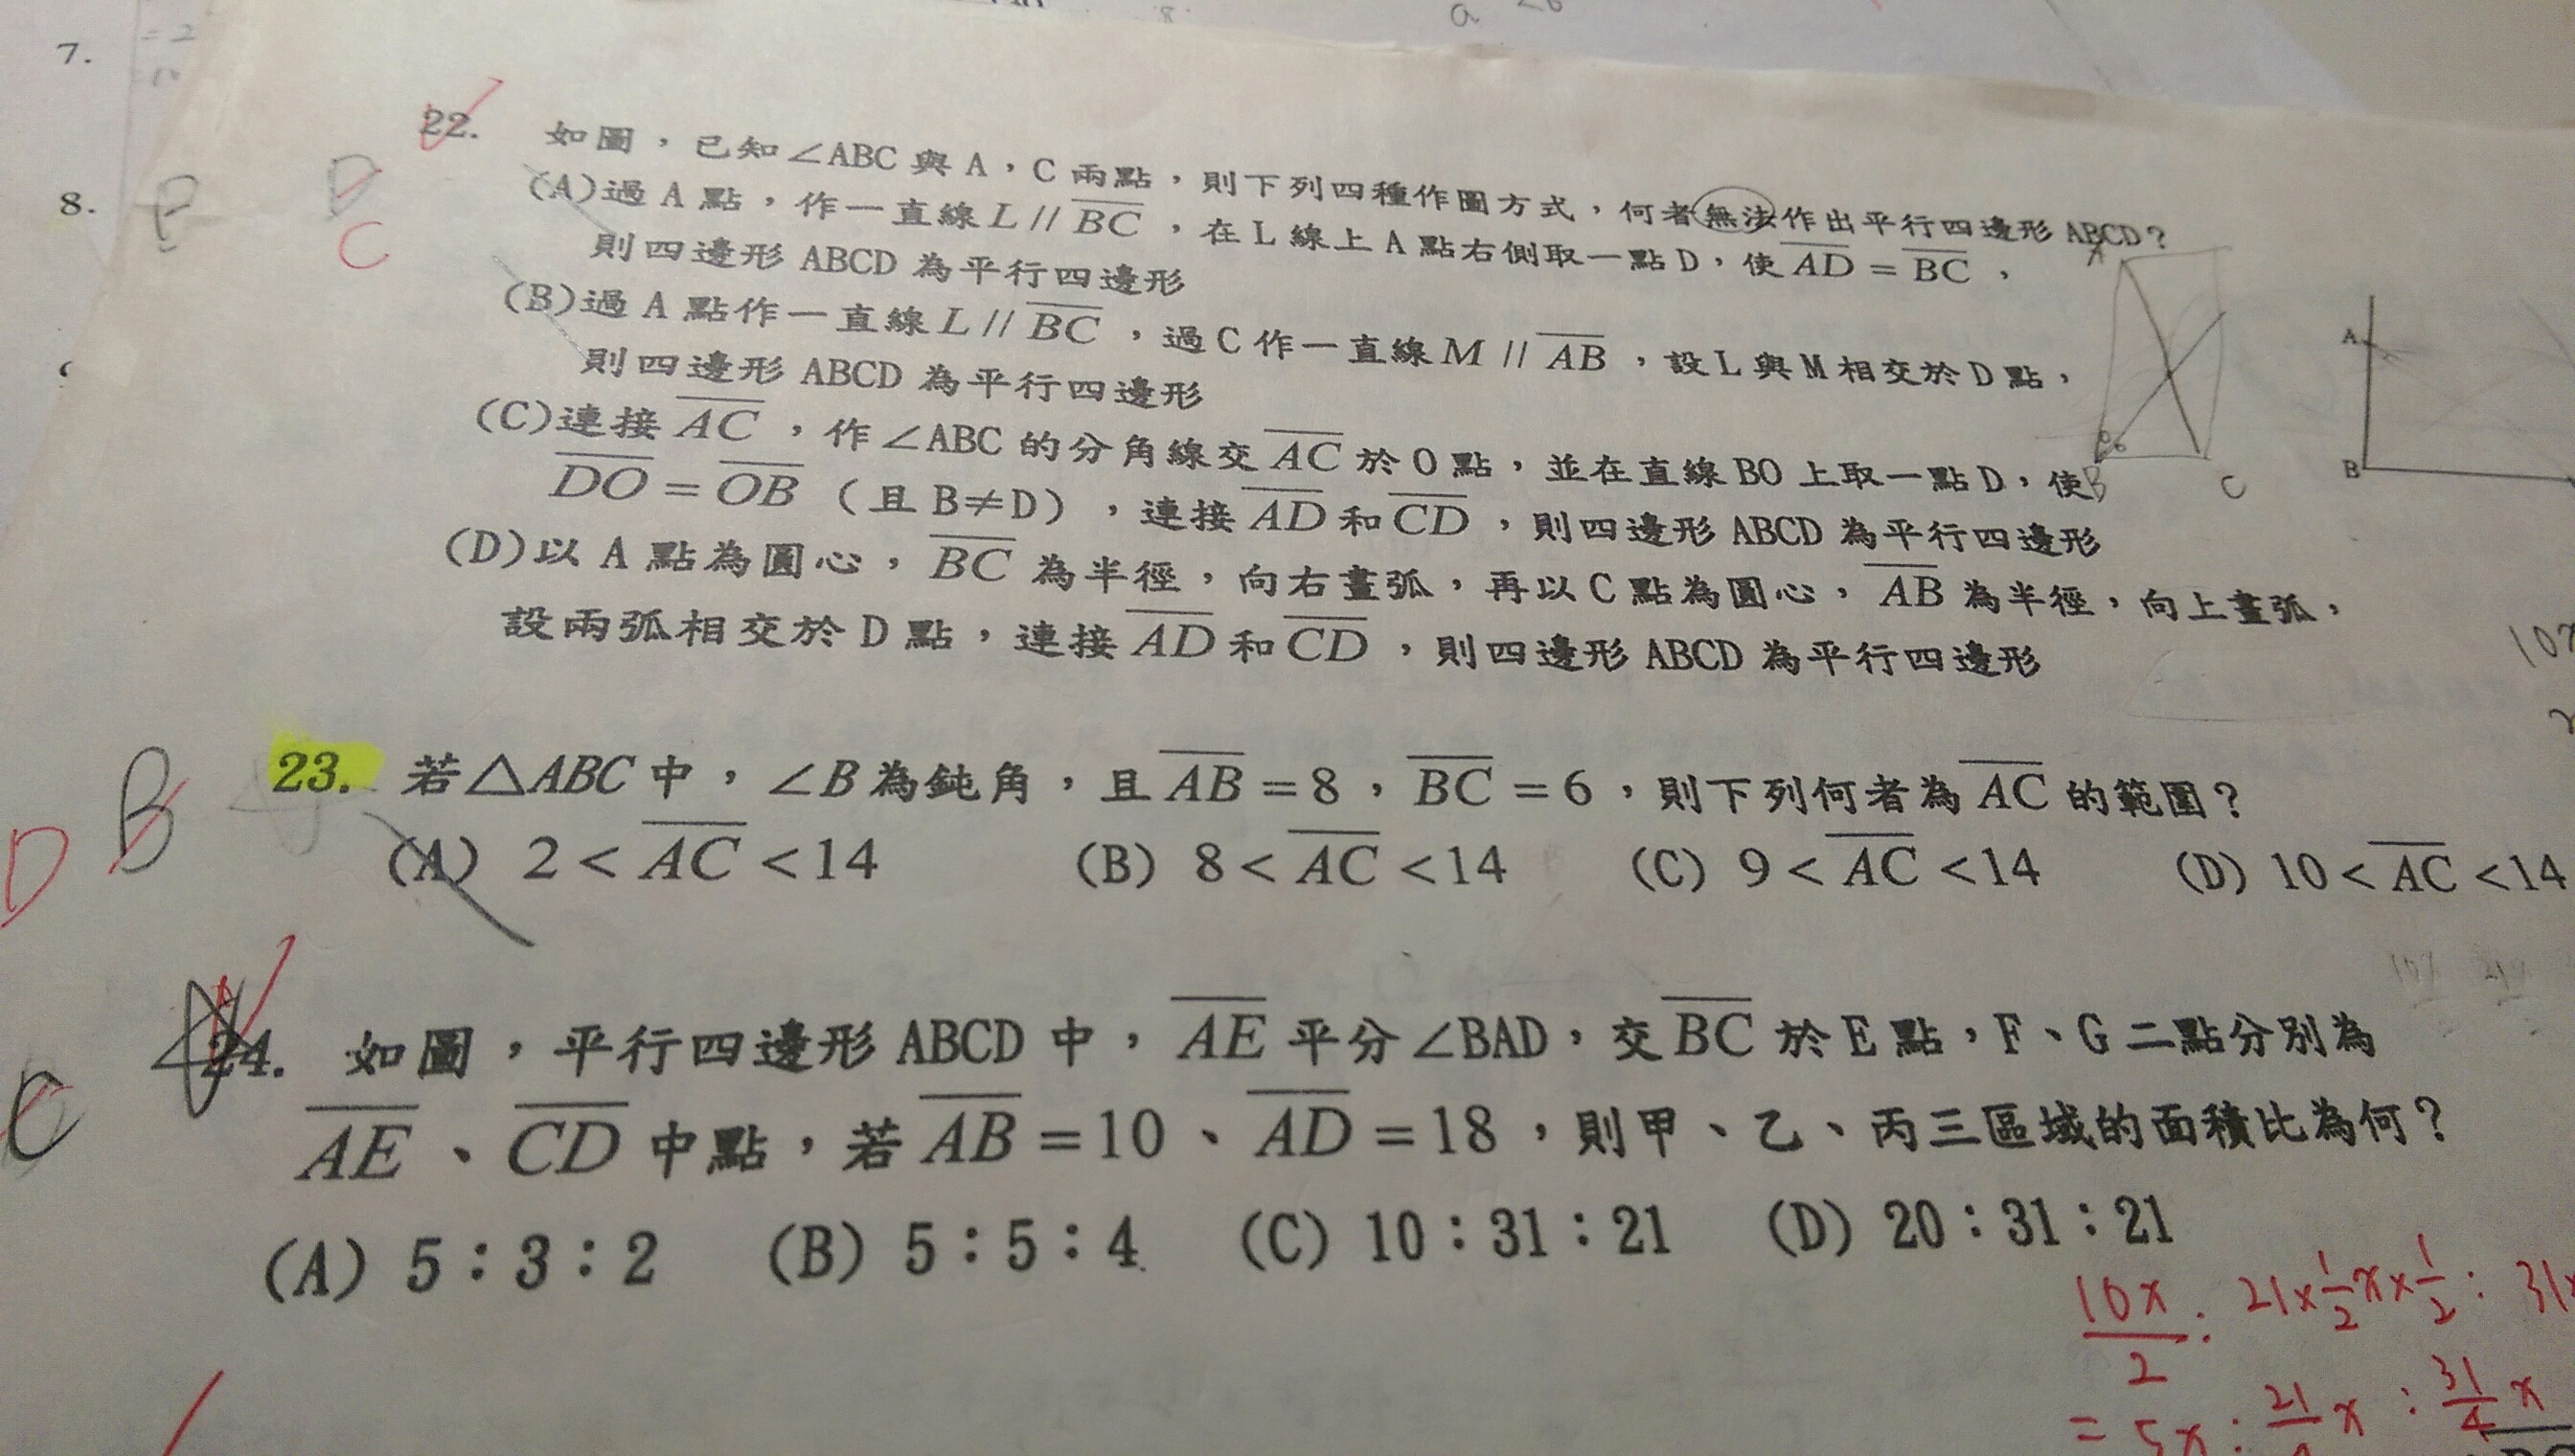 7.
= 2
8.
a
22. 如圖，已知∠ABC與A，C兩點，則下列四種作圖方式，何者無法作出平行四邊形ABCD？
(A)過A點，作一直線L // BC，在L線上A點右側取一點D，使AD = BC，
則四邊形ABCD為平行四邊形
(B)過A點作一直線L // BC，過C作一直線M // AB，設L與M相交於D點，
則四邊形ABCD為平行四邊形
(C)連接AC，作∠ABC的分角線交AC於O點，並在直線BO上取一點D，使
DO = OB（且B≠D），連接AD和CD，則四邊形ABCD為平行四邊形
(D)以A點為圓心，BC為半徑，向右畫弧，再以C點為圓心，AB為半徑，向上畫弧，
設兩弧相交於D點，連接AD和CD，則四邊形ABCD為平行四邊形
D
C
A
B
C
A
B
23. 若△ABC中，∠B為鈍角，且AB = 8，BC = 6，則下列何者為AC的範圍？
(A) 2 < AC < 14 (B) 8 < AC < 14 (C) 9 < AC < 14 (D) 10 < AC < 14
B
D
24. 如圖，平行四邊形ABCD中，AE平分∠BAD，交BC於E點，F、G二點分別為
AE、CD中點，若AB = 10、AD = 18，則甲、乙、丙三區域的面積比為何？
(A) 5：3：2 (B) 5：5：4 (C) 10：31：21 (D) 20：31：21
C
10x/2 : 21×1/2x×1/2 : 31
= 5x : 21/4 x : 31/4 x